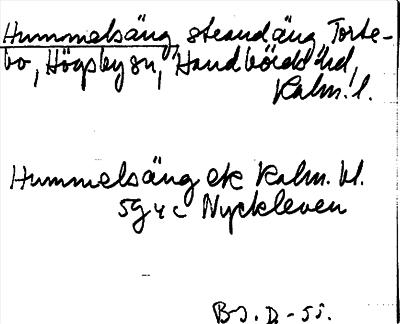 Hummelsäng, strandäng Torte-
bo, Högsby sn, Handbörds hd,
Kalm. l.
Hummelsäng ek Kalm. bl.
5g 4c Nyckleven
B-J. D-55.